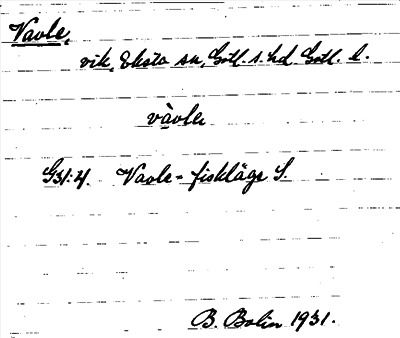 Vavle,
vik, Eksta sn, Gotl. s. hd. Gotl. l.
vàvle
G31:4. Vavle = fiskläge S.
B. Bolin 1931.